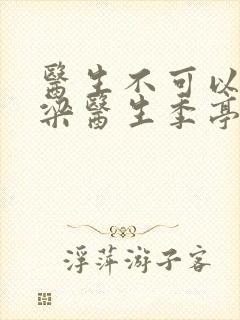 醫生不可以
梁醫生季亭
浮萍游子客